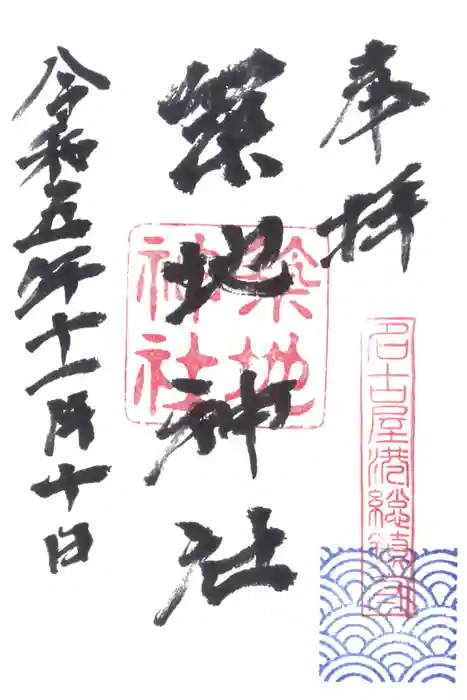 奉拝
名古屋港総鎮守
築地神社
築地
神社
令和五年十一月十日